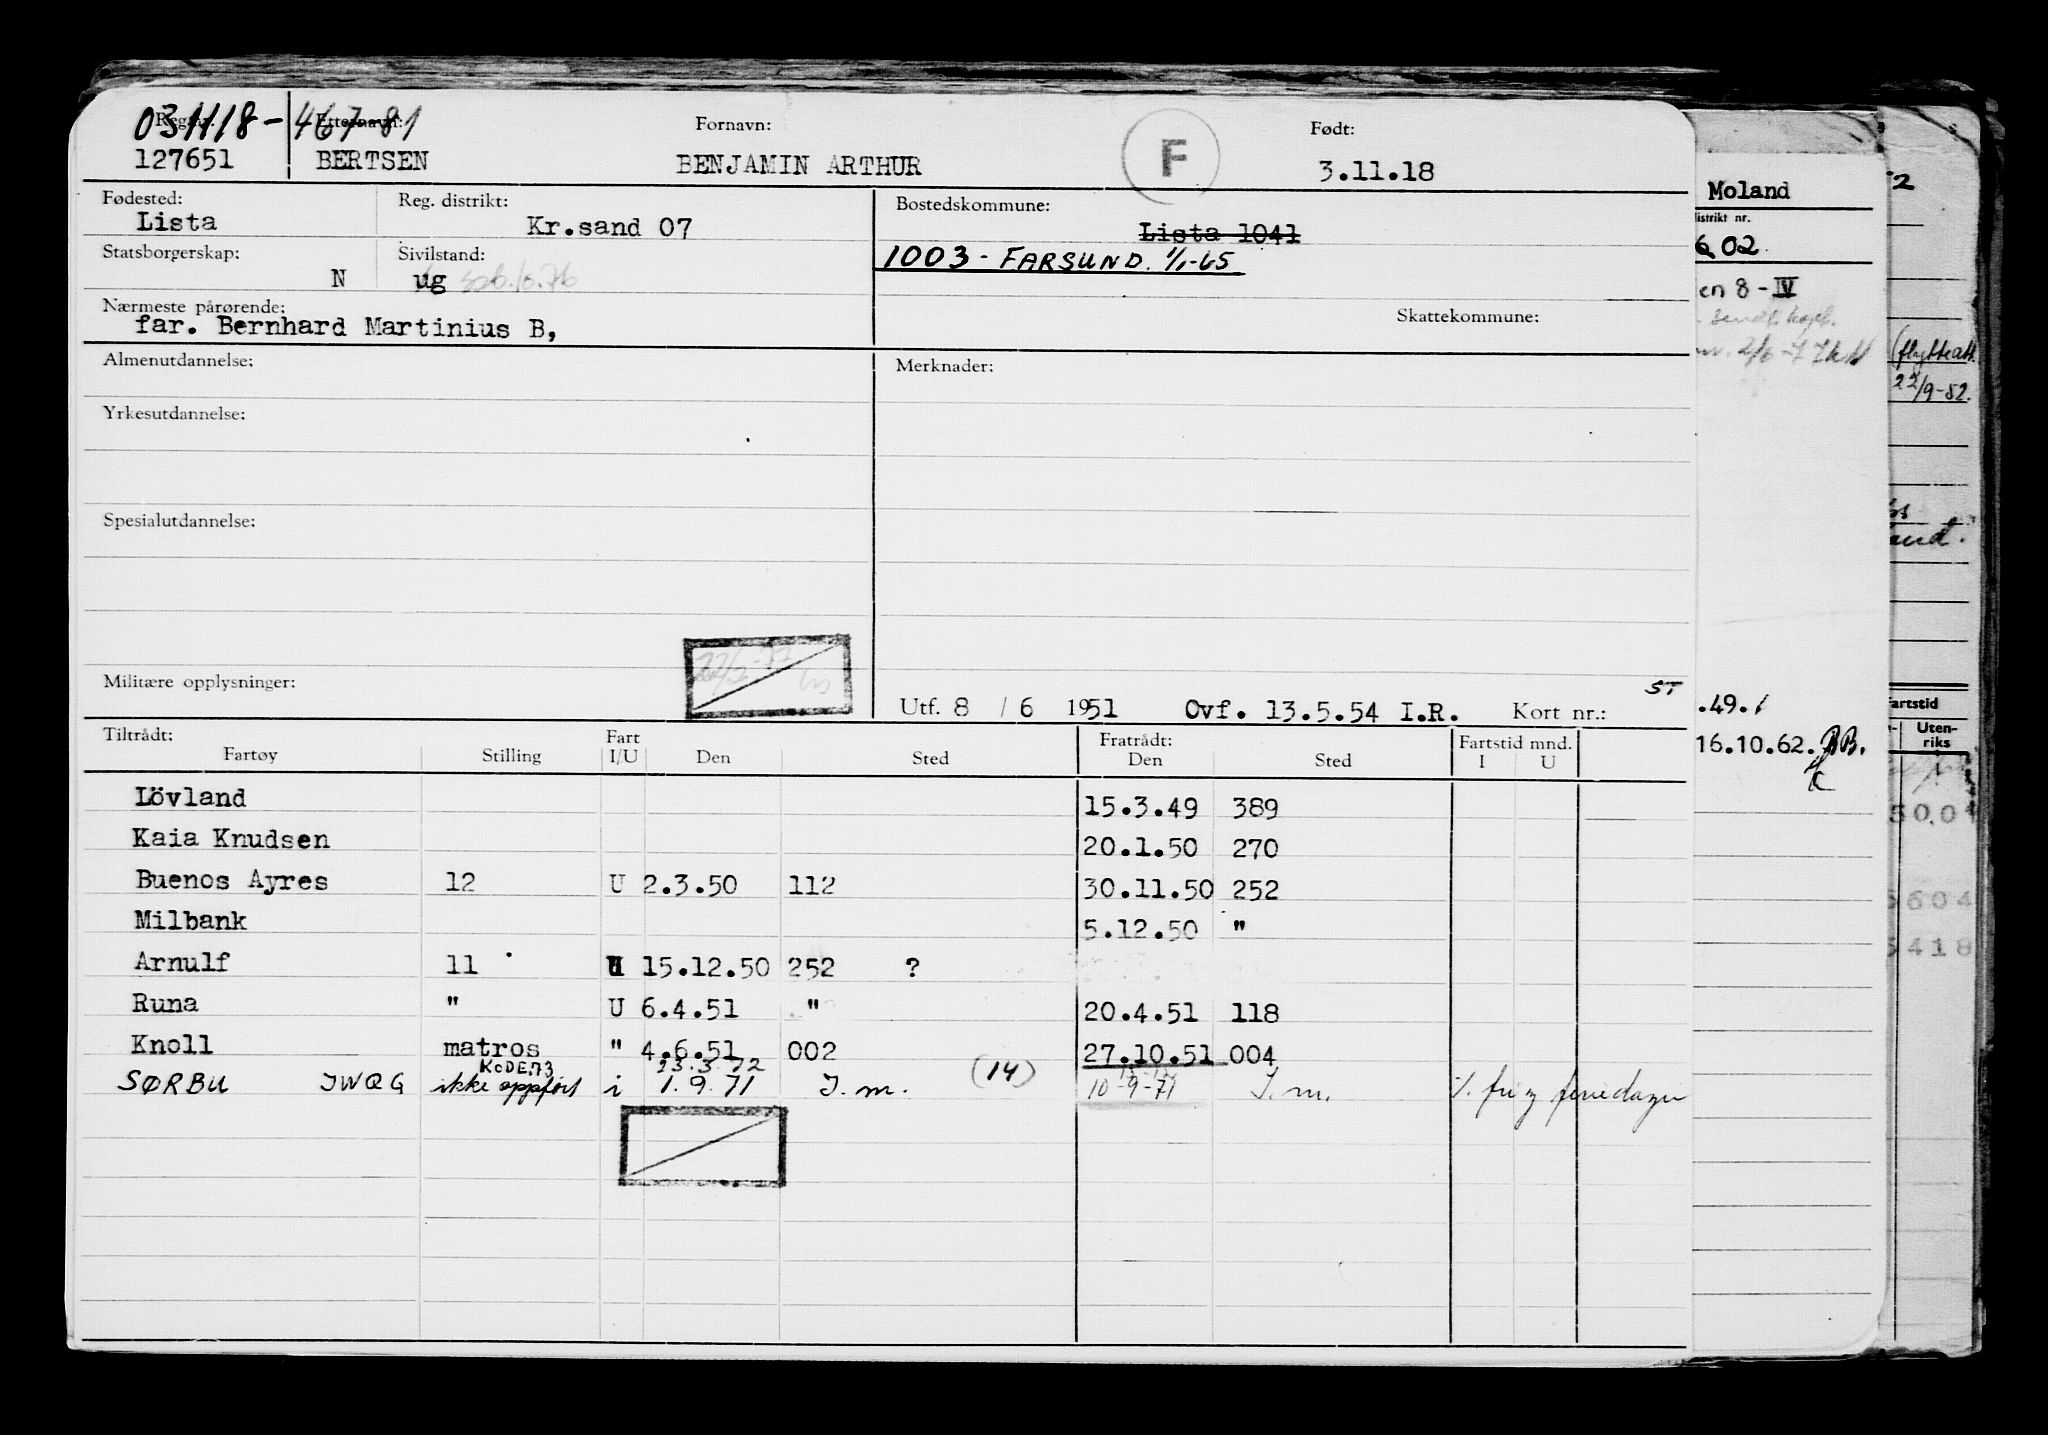 031118-46781
Reg. nr. Etternavn: Fornavn: F Født:
127651 BERTSEN BENJAMIN ARTHUR 3.11.18
Fødested: Reg. distrikt: Bostedskommune:
Lista Kr.sand 07 Lista 1041
Statsborgerskap: Sivilstand: 1003 - FARSUND. 1/1-65
N ug
Nærmeste pårørende: Skattekommune:
far. Bernhard Martinius B,
Almenutdannelse: Merknader:
Yrkesutdannelse:
Spesialutdannelse:
Militære opplysninger:
ST
Utf. 8 / 6 1951 Ovf. 13.5.54 I.R. Kort nr.:
Tiltrådt: Fart Fratrådt: Fartstid mnd.
Fartøy Stilling I/U Den Sted Den Sted I U
Lövland 15.3.49 389
Kaia Knudsen 20.1.50 270
Buenos Ayres 12 U 2.3.50 112 30.11.50 252
Milbank 5.12.50 "
Arnulf 11 U 15.12.50 252 ?
Runa " U 6.4.51 " 20.4.51 118
Knoll matros " 4.6.51 002 27.10.51 004
KODE 73 23.3.72
SØRBU JWQG ikke oppført i 1.9.71 I.m. (14) 10-9-71 I.m. % fri og feriedager
Moland
distrikt nr.
02
en 8 - IV
.49.
16.10.62. RB.
2
(flytteatt.
22/9-82.
and.
artstid
Uten-
riks
50.0
604
418